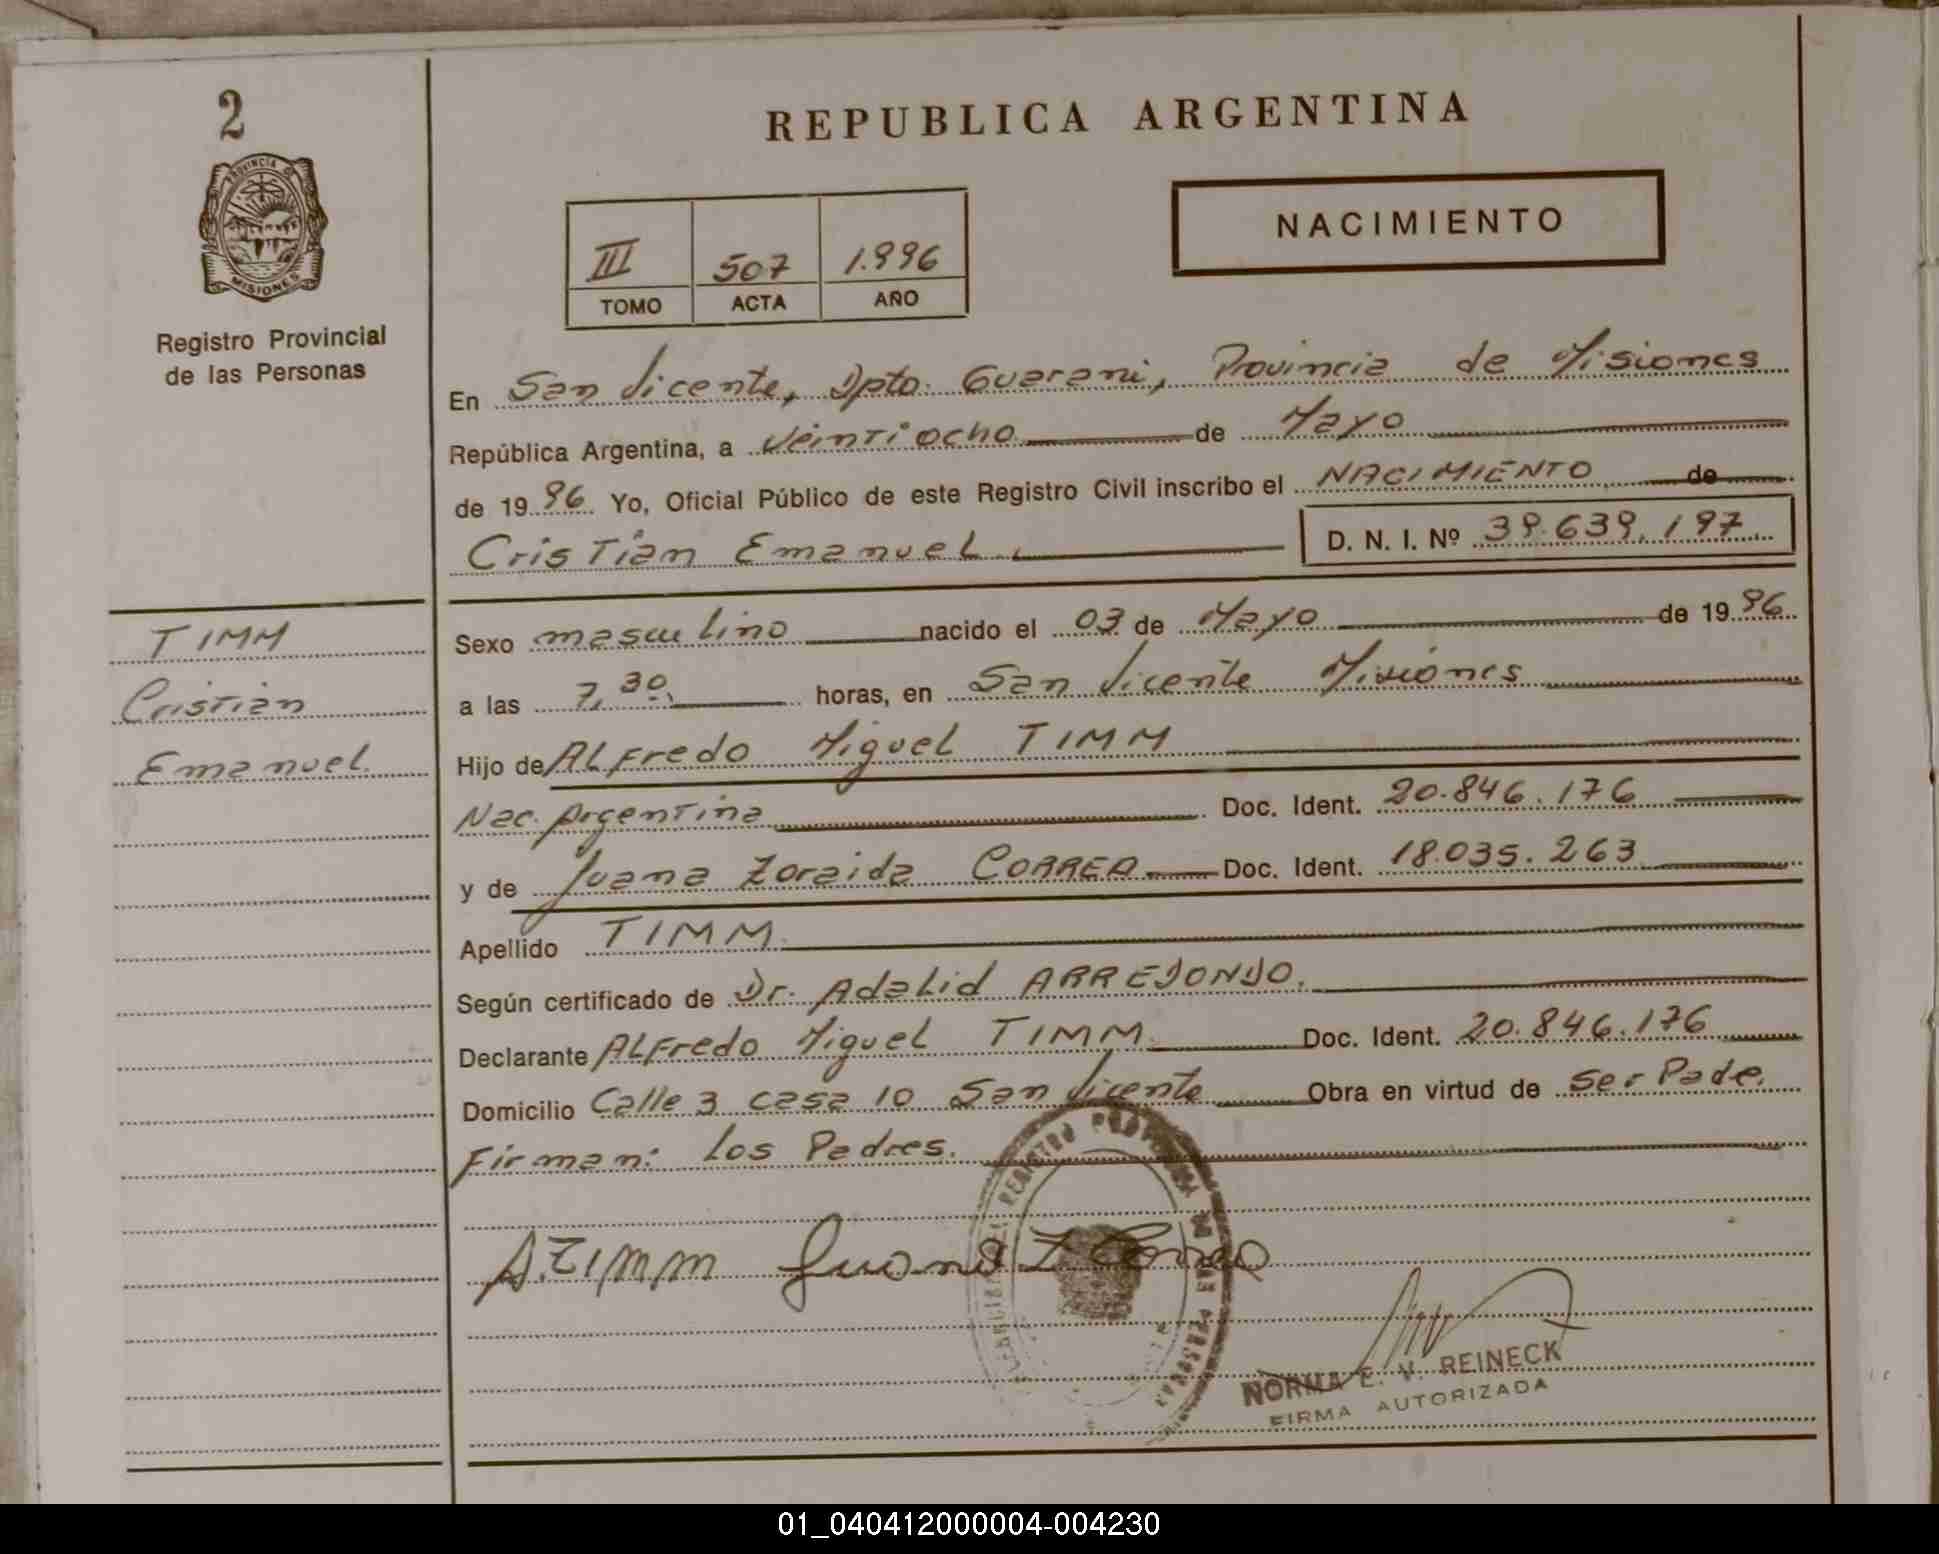 2
PROVINCIA DE
MISIONES
Registro Provincial
de las Personas
REPUBLICA ARGENTINA
NACIMIENTO
III 507 1.996
TOMO ACTA AÑO
En San Vicente, Dpto. Guarani, Provincia de Misiones
República Argentina, a Veintiocho de Mayo
de 1996 Yo, Oficial Público de este Registro Civil inscribo el NACIMIENTO de
Cristian Emanuel. D. N. I. Nº 39.639.197
TIMM
Cristian
Emanuel.
Sexo masculino nacido el 03 de Mayo de 1996
a las 7,30, horas, en San Vicente Misiones
Hijo de Alfredo Miguel TIMM
Nac. Argentina Doc. Ident. 20.846.176
y de Juana Zoraida CORREA Doc. Ident. 18.035.263
Apellido TIMM.
Según certificado de Dr. Adalid ARREDONDO.
Declarante Alfredo Miguel TIMM. Doc. Ident. 20.846.176
Domicilio Calle 3 casa 10 San Vicente Obra en virtud de ser Pade.
Firman: Los Padres.
REGISTRO PROVINCIAL DE LAS PERSONAS
A. TIMM Juana Z Correa
NORMA E. V. REINECK
FIRMA AUTORIZADA
01_040412000004-004230